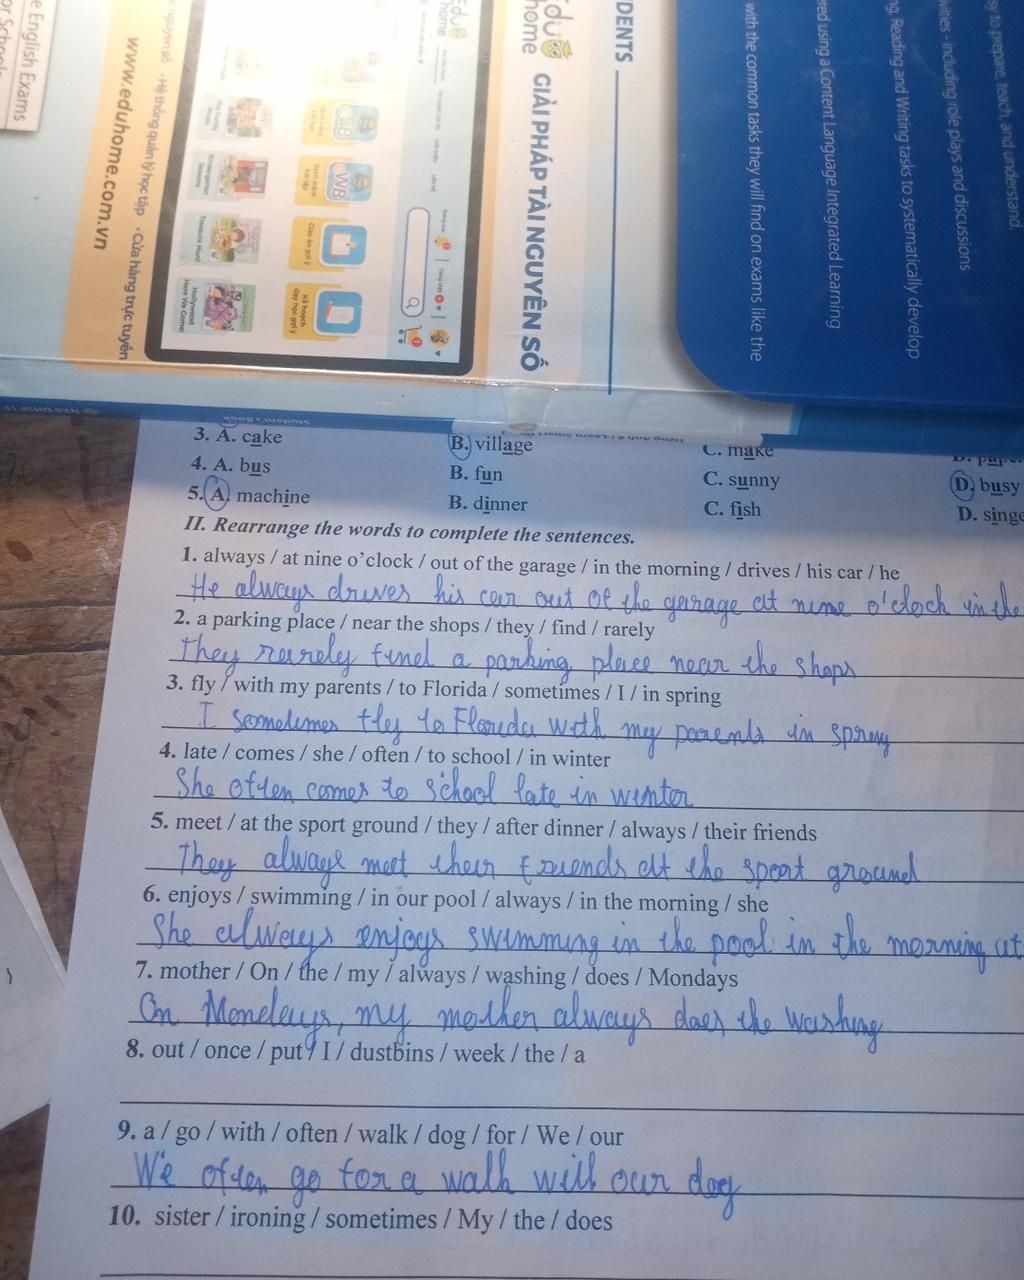 e English Exams
or Schools
www.eduhome.com.vn
• Hệ thống quản lý học tập • Cửa hàng trực tuyến
Edu
home
Treasure Hunt
Hollywood
Here We Come!
Edu
home
GIẢI PHÁP TÀI NGUYÊN SỐ
DENTS
with the common tasks they will find on exams like the
red using a Content Language Integrated Learning
ng, Reading and Writing tasks to systematically develop
vities - including role plays and discussions
sy to prepare, teach, and understand.
Student's Book
3. A. cake B. village C. make
4. A. bus B. fun C. sunny D. busy
5. A. machine B. dinner C. fish D. singe
II. Rearrange the words to complete the sentences.
1. always / at nine o'clock / out of the garage / in the morning / drives / his car / he
He always drives his car out of the garage at nine o'clock in the
2. a parking place / near the shops / they / find / rarely
They rarely find a parking place near the shops
3. fly / with my parents / to Florida / sometimes / I / in spring
I sometimes fly to Florida with my parents in spring
4. late / comes / she / often / to school / in winter
She often comes to school late in winter
5. meet / at the sport ground / they / after dinner / always / their friends
They always meet their friends at the sport ground
6. enjoys / swimming / in our pool / always / in the morning / she
She always enjoys swimming in the pool in the morning at
7. mother / On / the / my / always / washing / does / Mondays
On Mondays, my mother always does the washing
8. out / once / put / I / dustbins / week / the / a
9. a / go / with / often / walk / dog / for / We / our
We often go for a walk with our dog
10. sister / ironing / sometimes / My / the / does